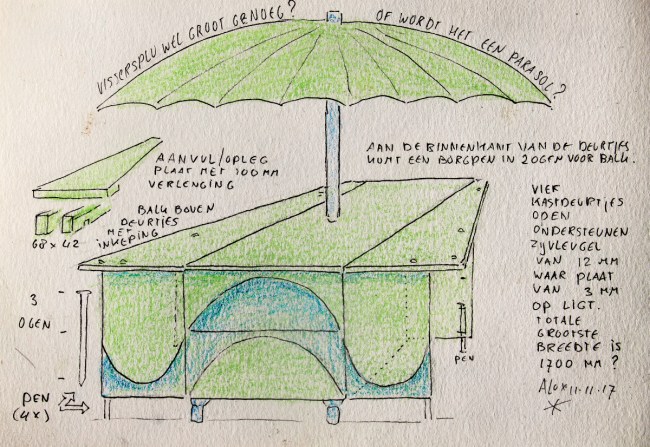 VISSERSPLU WEL GROOT GENOEG?
OF WORDT HET EEN PARASOL?
AANVUL/OPLEG
PLAAT MET 100 MM
VERLENGING
AAN DE BINNENKANT VAN DE DEURTJES
KOMT EEN BORGPEN IN 2 OGEN VOOR BALK.
BALK BOVEN
DEURTJES
MET
INKEPING
68 x 42
VIER
KASTDEURTJES
OPEN
ONDERSTEUNEN
ZIJVLEUGEL
VAN 12 MM
WAAR PLAAT
VAN 3 MM
OP LIGT.
TOTALE
GROOTSTE
BREEDTE IS
1700 MM?
3
OGEN
PEN
(4x)
PEN
11-11-17